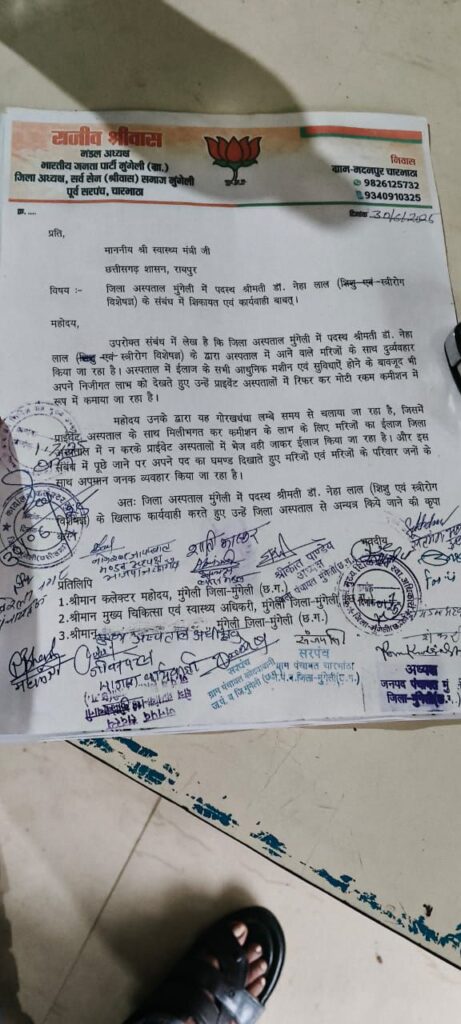 राजीव श्रीवास
मंडल अध्यक्ष
भारतीय जनता पार्टी मुंगेली (ग्रा.)
जिला अध्यक्ष, सर्व सेन (श्रीवास) समाज मुंगेली
पूर्व सरपंच, चारभाठा
निवास
ग्राम-मदनपुर चारभाठा
9826125732
9340910325
क्र. ....
दिनांक 30/6/2025
प्रति,
माननीय श्री स्वास्थ्य मंत्री जी
छत्तीसगढ़ शासन, रायपुर
विषय :- जिला अस्पताल मुंगेली में पदस्थ श्रीमती डॉ. नेहा लाल (शिशु एवं स्त्रीरोग
विशेषज्ञ) के संबंध में शिकायत एवं कार्यवाही बाबत्।
महोदय,
उपरोक्त संबंध में लेख है कि जिला अस्पताल मुंगेली में पदस्थ श्रीमती डॉ. नेहा
लाल (शिशु एवं स्त्रीरोग विशेषज्ञ) के द्वारा अस्पताल में आने वाले मरिजों के साथ दुर्व्यवहार
किया जा रहा है। अस्पताल में ईलाज के सभी आधुमिक मशीन एवं सुविधाऐं होने के बावजूद भी
अपने निजीगत लाभ को देखते हुए उन्हें प्राईवेट अस्पतालों में रिफर कर मोटी रकम कमीशन में
रूप में कमाया जा रहा है।
महोदय उनके द्वारा यह गोरखधंधा लम्बे समय से चलाया जा रहा है, जिसमें
प्राईवेट अस्पताल के साथ मिलीभगत कर कमीशन के लाभ के लिए मरिजों का ईलाज जिला
अस्पताल में न करके प्राईवेट अस्पतालों में भेज वही जाकर ईलाज किया जा रहा है। और इस
संबंध में पूछे जाने पर अपने पद का घमण्ड दिखाते हुए मरिजों एवं मरिजों के परिवार जनों के
साथ अपमान जनक व्यवहार किया जा रहा है।
अतः जिला अस्पताल मुंगेली में पदस्थ श्रीमती डॉ. नेहा लाल (शिशु एवं स्त्रीरोग
विशेषज्ञ) के खिलाफ कार्यवाही करते हुए उन्हें जिला अस्पताल से अन्यत्र किये जाने की कृपा
भवदीय
श्रीकांत पाण्डेय
प्रतिलिपि
1.श्रीमान कलेक्टर महोदय, मुंगेली जिला-मुंगेली (छ.ग.)
2.श्रीमान मुख्य चिकित्सा एवं स्वास्थ्य अधिकरी, मुंगेली जिला-मुंगेली (छ.ग.)
3.श्रीमान मुंगेली जिला-मुंगेली (छ.ग.)
सरपंच
ग्राम पंचायत
सरपंच
ग्राम पंचायत चारभाठा
अध्यक्ष
जनपद पंचायत मुं
जिला-मुंगेली (छ.ग.)